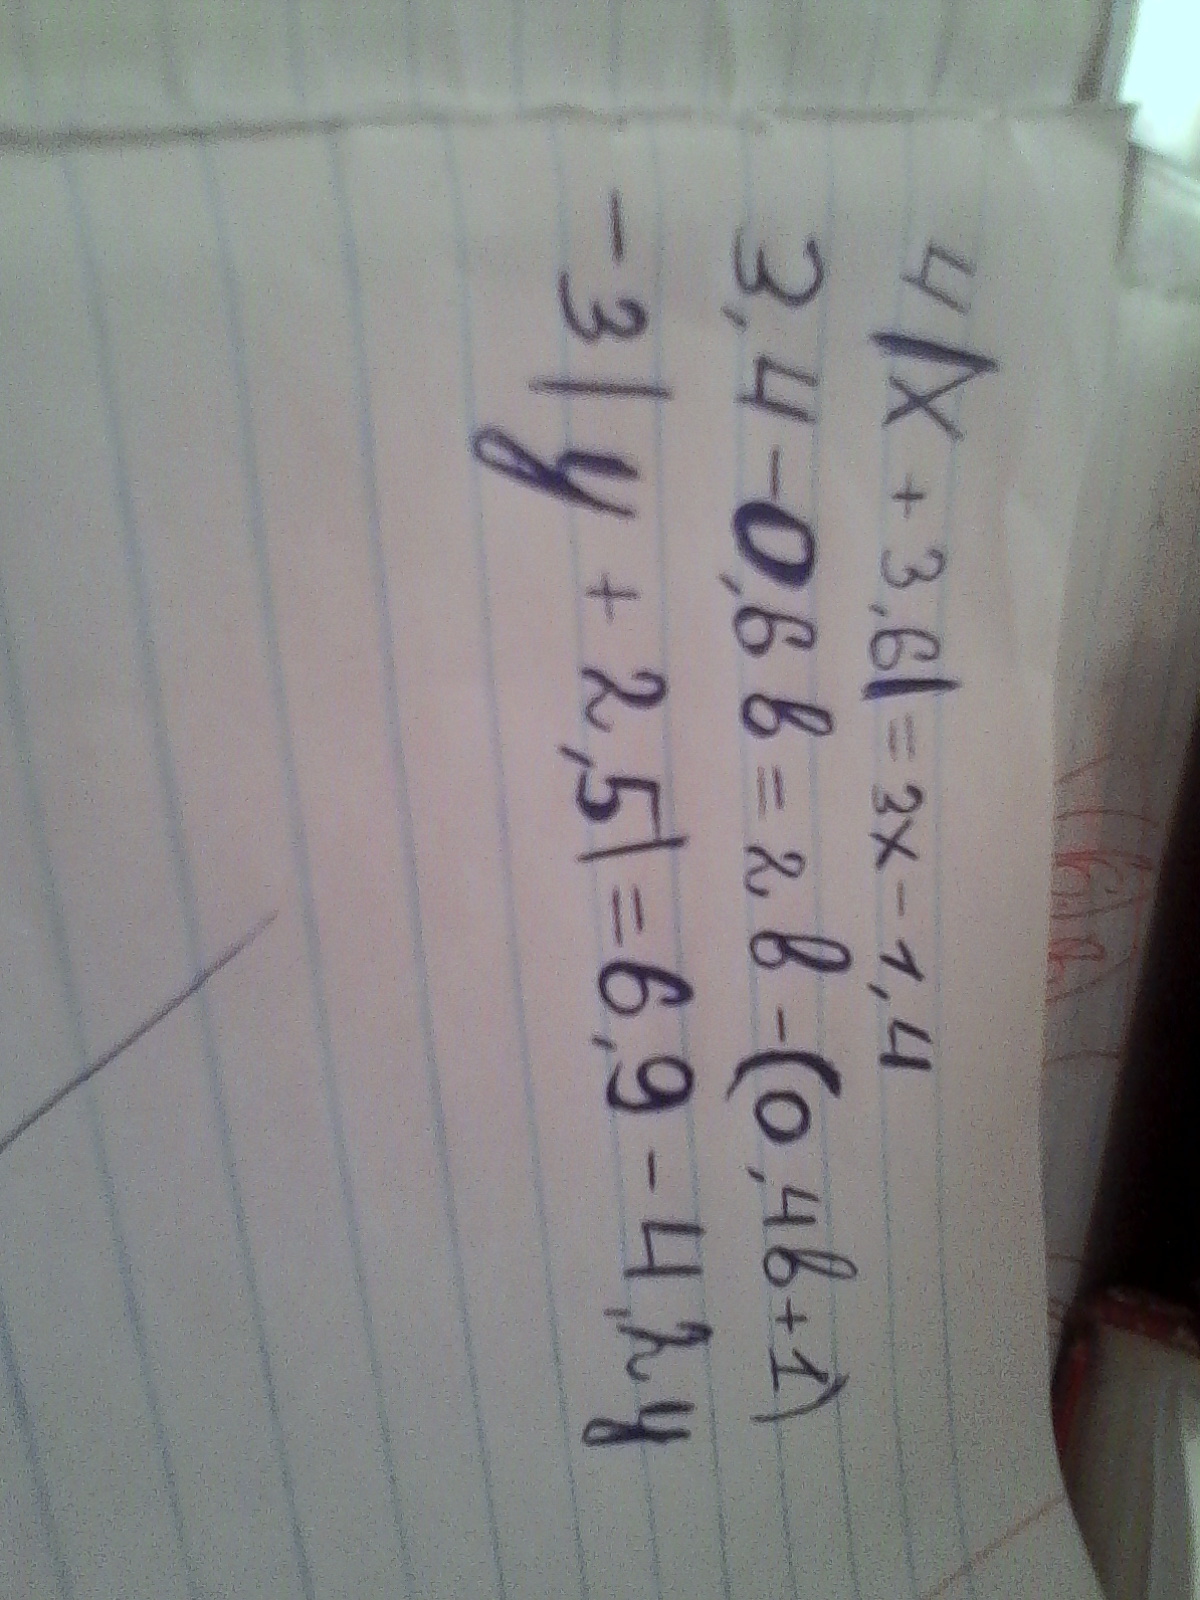 4|x + 3,6| = 3x - 1,4
3,4 - 0,6в = 2в - (0,4в + 1)
-3|y + 2,5| = 6,9 - 4,2y